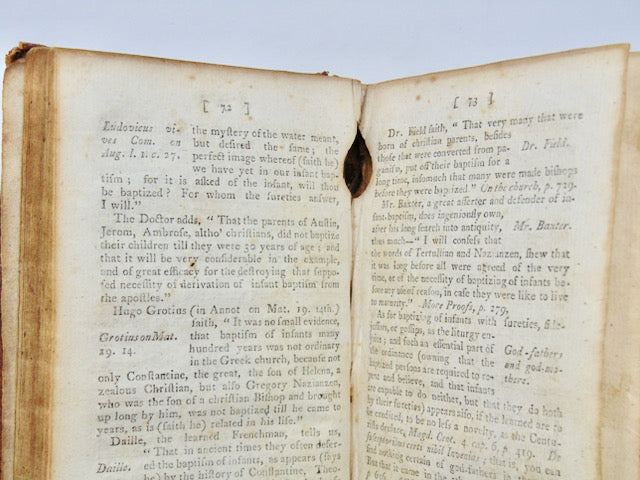 [ 72 ]
Ludovicus vi-
ves Com. en
Aug. l. 1. c. 27.
the mystery of the water meant,
but desired the same; the
perfect image whereof (saith he)
we have yet in our infant bap-
tism; for it is asked of the infant, will thou
be baptized? For whom the sureties answer,
I will."
The Doctor adds, "That the parents of Austin,
Jerom, Ambrose, altho' christians, did not baptize
their children till they were 30 years of age; and
that it will be very considerable in the example,
and of great efficacy for the destroying that suppo-
sed necessity of derivation of infant baptism from
the apostles."
Hugo Grotius (in Annot on Mat. 19. 14th.)
Grotius on Mat.
19. 14.
saith, "It was no small evidence,
that baptism of infants many
hundred years was not ordinary
in the Greek church, because not
only Constantine, the great, the son of Helena, a
zealous Christian, but also Gregory Nazianzen,
who was the son of a christian Bishop and brought
up long by him, was not baptized till he came to
years, as is (saith he) related in his life."
Daille, the learned Frenchman, tells us,
Daille.
"That in ancient times they often defer-
ed the baptism of infants, as appears (says
he) by the history of Constantine, Theo-
[ 73 ]
Dr. Field saith, "That very many that were
born of christian parents, besides
those that were converted from pa-
ganism, put off their baptism for a
Dr. Field.
long time, insomuch that many were made bishops
before they were baptized." On the church, p. 729.
Mr. Baxter, a great asserter and defender of in-
fant-baptism, does ingeniously own,
after his long search into antiquity,
thus much—"I will confess that
Mr. Baxter.
the words of Tertullian and Nazianzen, shew that
it was long before all were agreed of the very
time, or of the necessity of baptizing of infants be-
fore any use of reason, in case they were like to live
to maturity." More Proofs, p. 279,
As for baptizing of infants with sureties,
or gossips, as the liturgy en-
joins; and such an essential part of
the ordinance (owning that the
baptized persons are required to re-
pent and believe, and that infants
God-fathers
and god-mo-
thers.
are capable to do neither, but that they do both
by their sureties) appears also, if the learned are to
be credited, to be no less a novelty, as the Centu-
Magd. Cent. 4. cap. 6, p. 419. De
susceptoribus certi nihil invenies; that is, you can
find nothing certain of god-fathers in the
But that it came in the